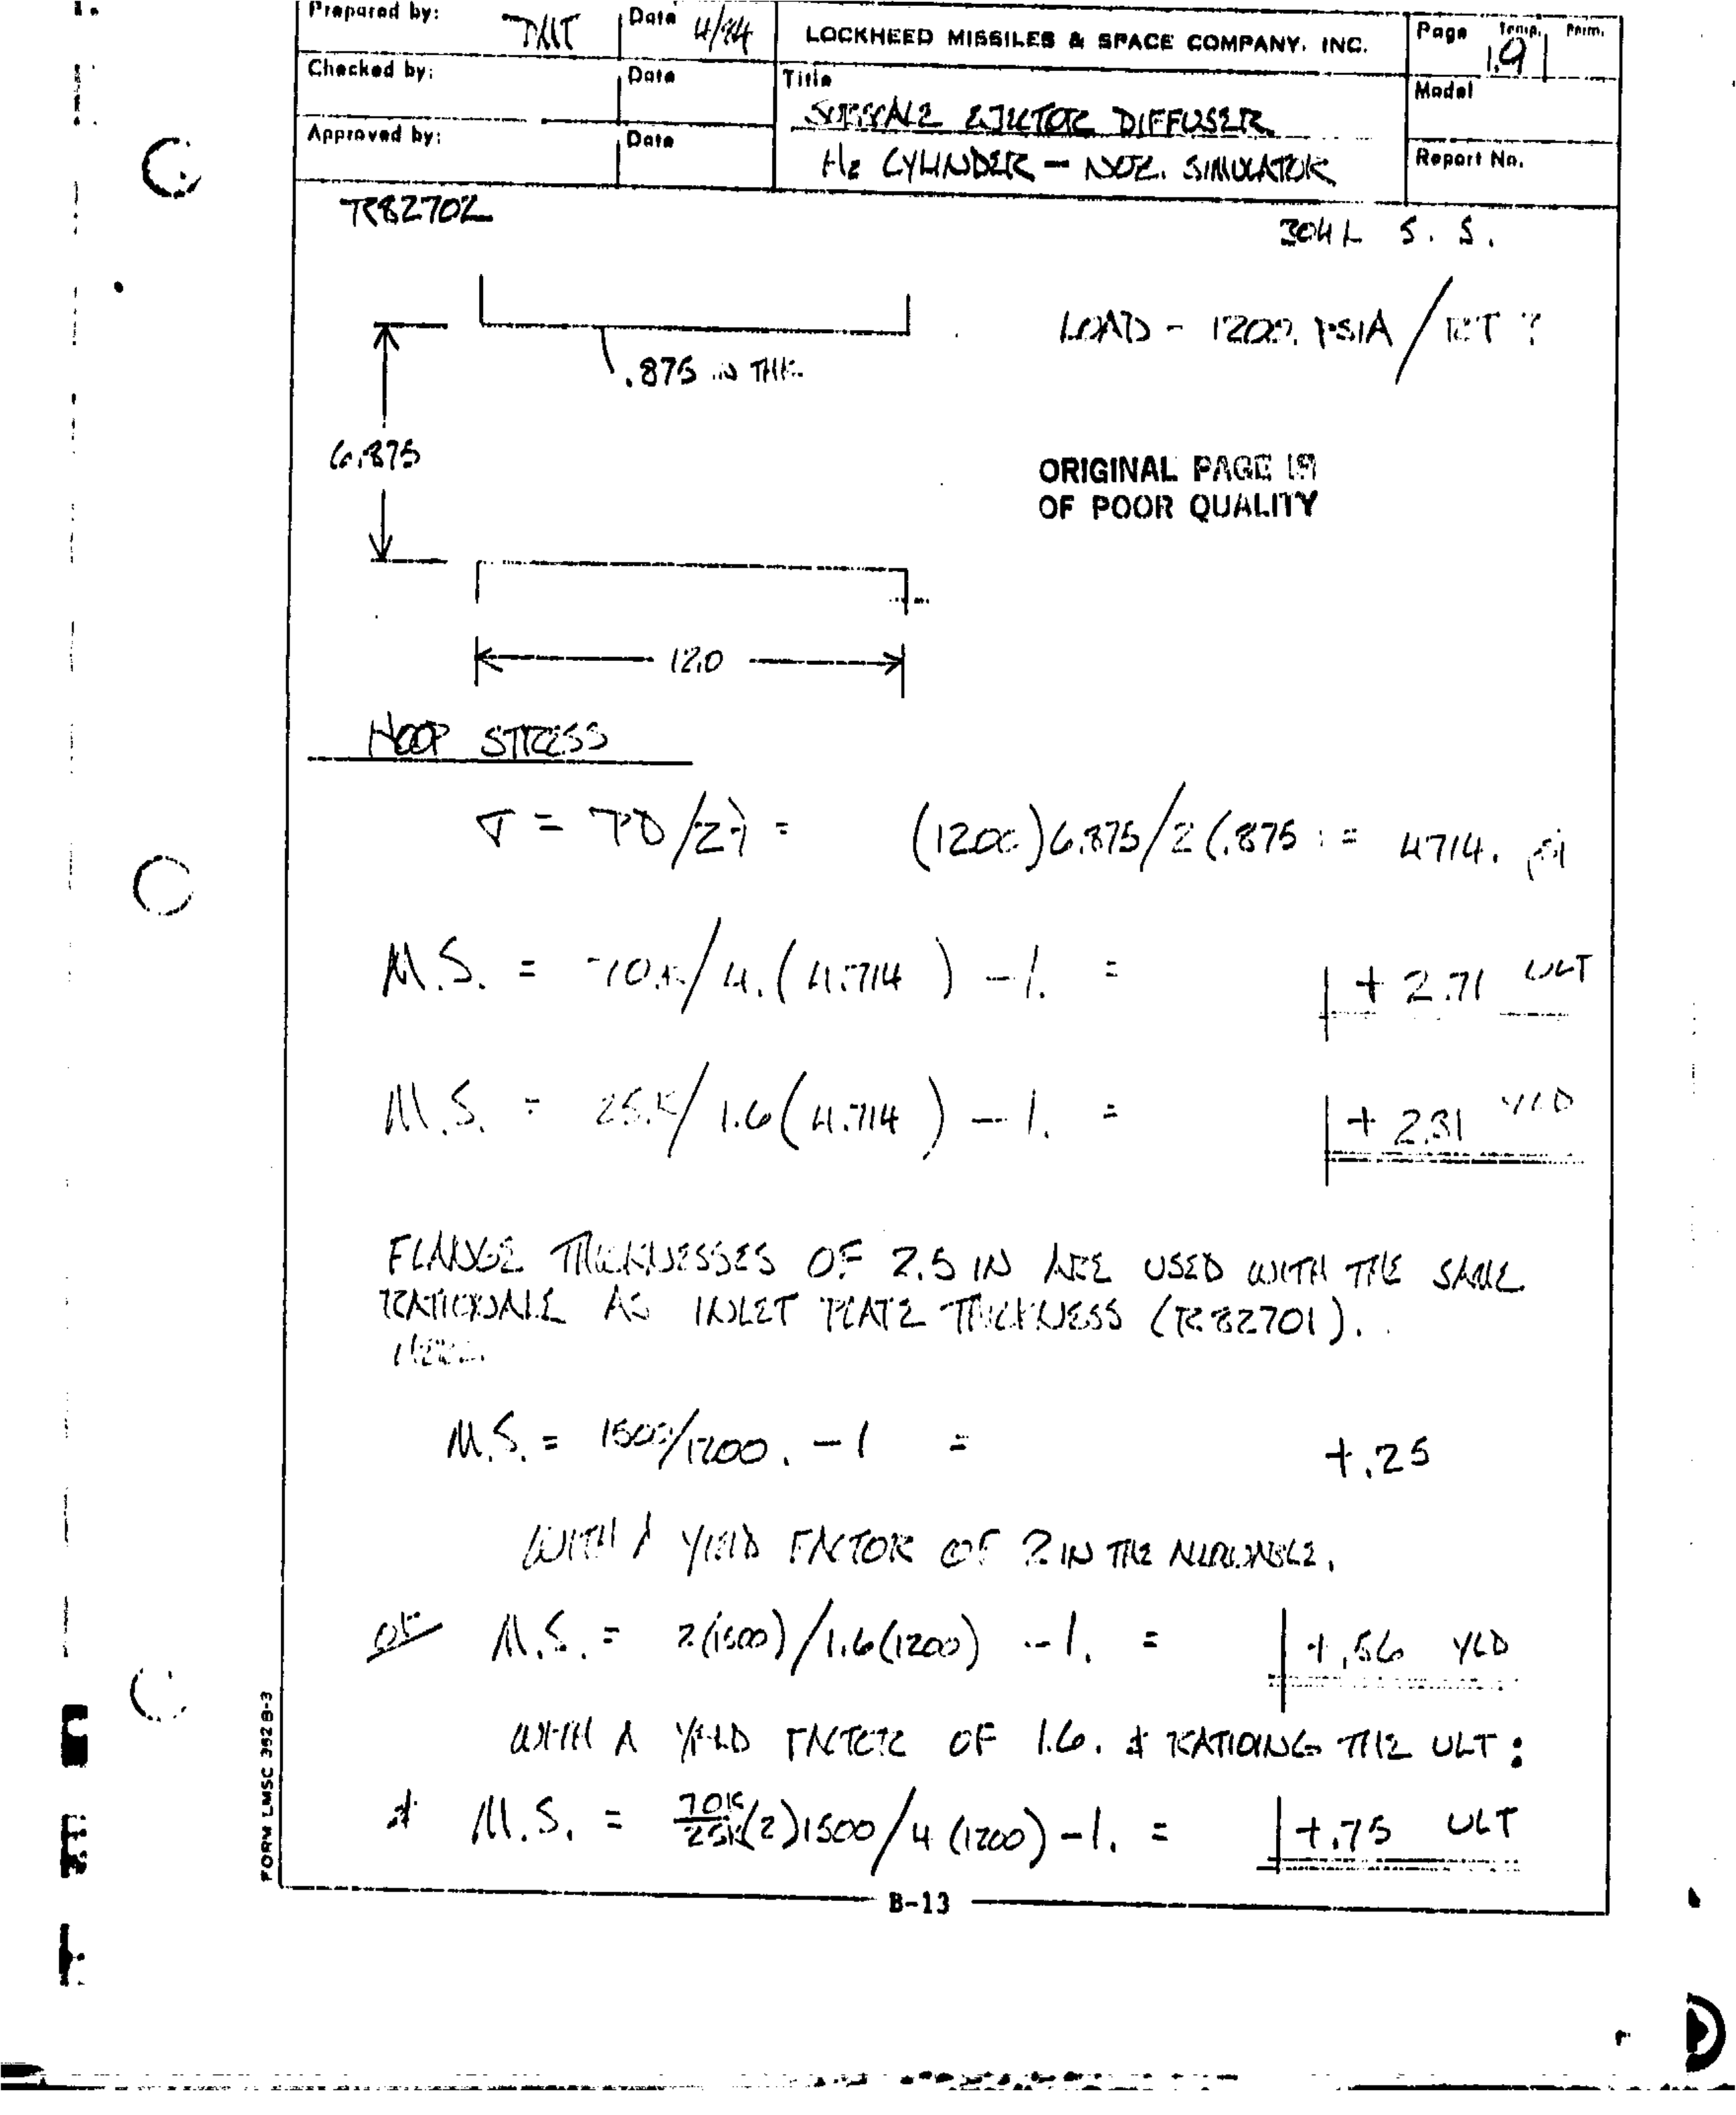 Prepared by: DMT Date 4/84 LOCKHEED MISSILES & SPACE COMPANY, INC. Page Temp. Perm.
1.9
Checked by: Date Title Model
SUBSCALE EJECTOR DIFFUSER
Approved by: Date H2 CYLINDER - NOZ. SIMULATOR Report No.
R82702
304L S. S.
LOAD - 1200. PSIA / RT ?
.875 IN THK.
6.875
ORIGINAL PAGE IS
OF POOR QUALITY
12.0
HOOP STRESS
σ = PD/2t = (1200)6.875/2(.875) = 4714. psi
M.S. = 70.K/4.(4.714) -1. = +2.71 ULT
M.S. = 25.K/1.6(4.714) -1. = +2.31 YLD
FLANGE THICKNESSES OF 2.5 IN ARE USED WITH THE SAME
RATIONALE AS INLET PLATE THICKNESS (R82701).
M.S. = 1500/1200. -1 = +.25
WITH A YIELD FACTOR OF 2 IN THE ALLOWABLE.
OR M.S. = 2(1500)/1.6(1200) -1. = +.56 YLD
WITH A YIELD FACTOR OF 1.6. & RATIOING THE ULT:
& M.S. = 70K/25K(2)1500/4(1200) -1. = +.75 ULT
FORM LMSC 352 B-3
B-13